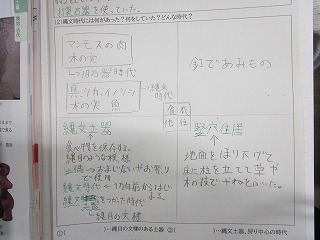 打製石器を使っていた。
(2)縄文時代には何があった?何をしていた?どんな時代?
マンモスの肉
木の実
↳旧石器時代
釘であみもの
具.シカ.イノシシ
木の実 魚
→縄文時代
食 衣
他 住
縄文土器
食べ物を保存する。
縄目のような模様
土偶→おまじないやお祭りで使用
縄文時代←1万年前からはじまる。
縄文土器をつかった時代
縄目の文様
竪穴住居
↑
地面をほり下げて
床に柱を立てて草や
木の枝でやねをおいた。
②1 )…縄目の文様のある土器
②3( )…縄文土器、狩り中心の時代